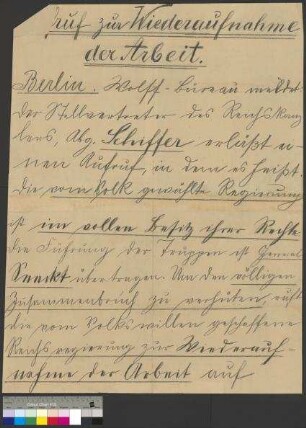 Ruf zur Wiederaufnahme
der Arbeit.
Berlin. Wolff-Bureau meldet:
Der Stellvertreter des Reichskanz
lers, Abg. Schiffer erläßt ei-
nen Aufruf, in dem es heißt:
Die vom Volk gewählte Regierung
ist im vollen Besitz ihrer Rechte
die Führung der Truppen ist General
Seeckt übertragen. Um den völligen
Zusammenbruch zu verhüten, ruft
die vom Volkswillen geschaffene
Reichsregierung zur Wiederauf-
nahme der Arbeit auf